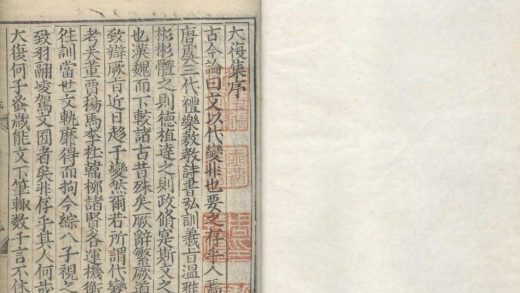 大復集序
古今論曰文以代變非也要之存乎人焉
唐虞三代禮樂敷教詩書弘訓義旨温雅
彬彬體之則德植達之則政脩是斯文之
也漢魏而下載諸古昔殊矣厥辭繁厥道
致辯厥旨近日趨千變然爾若所謂代變
老萇董賈揚馬李杜韓柳諸賢各運機衡
徃訓當世文軌靡得而拘今綜八子視之
致羽翮凌駕文囿者矣非存乎其人何哉
大復何子蚤歳能文下筆輙数千言不休